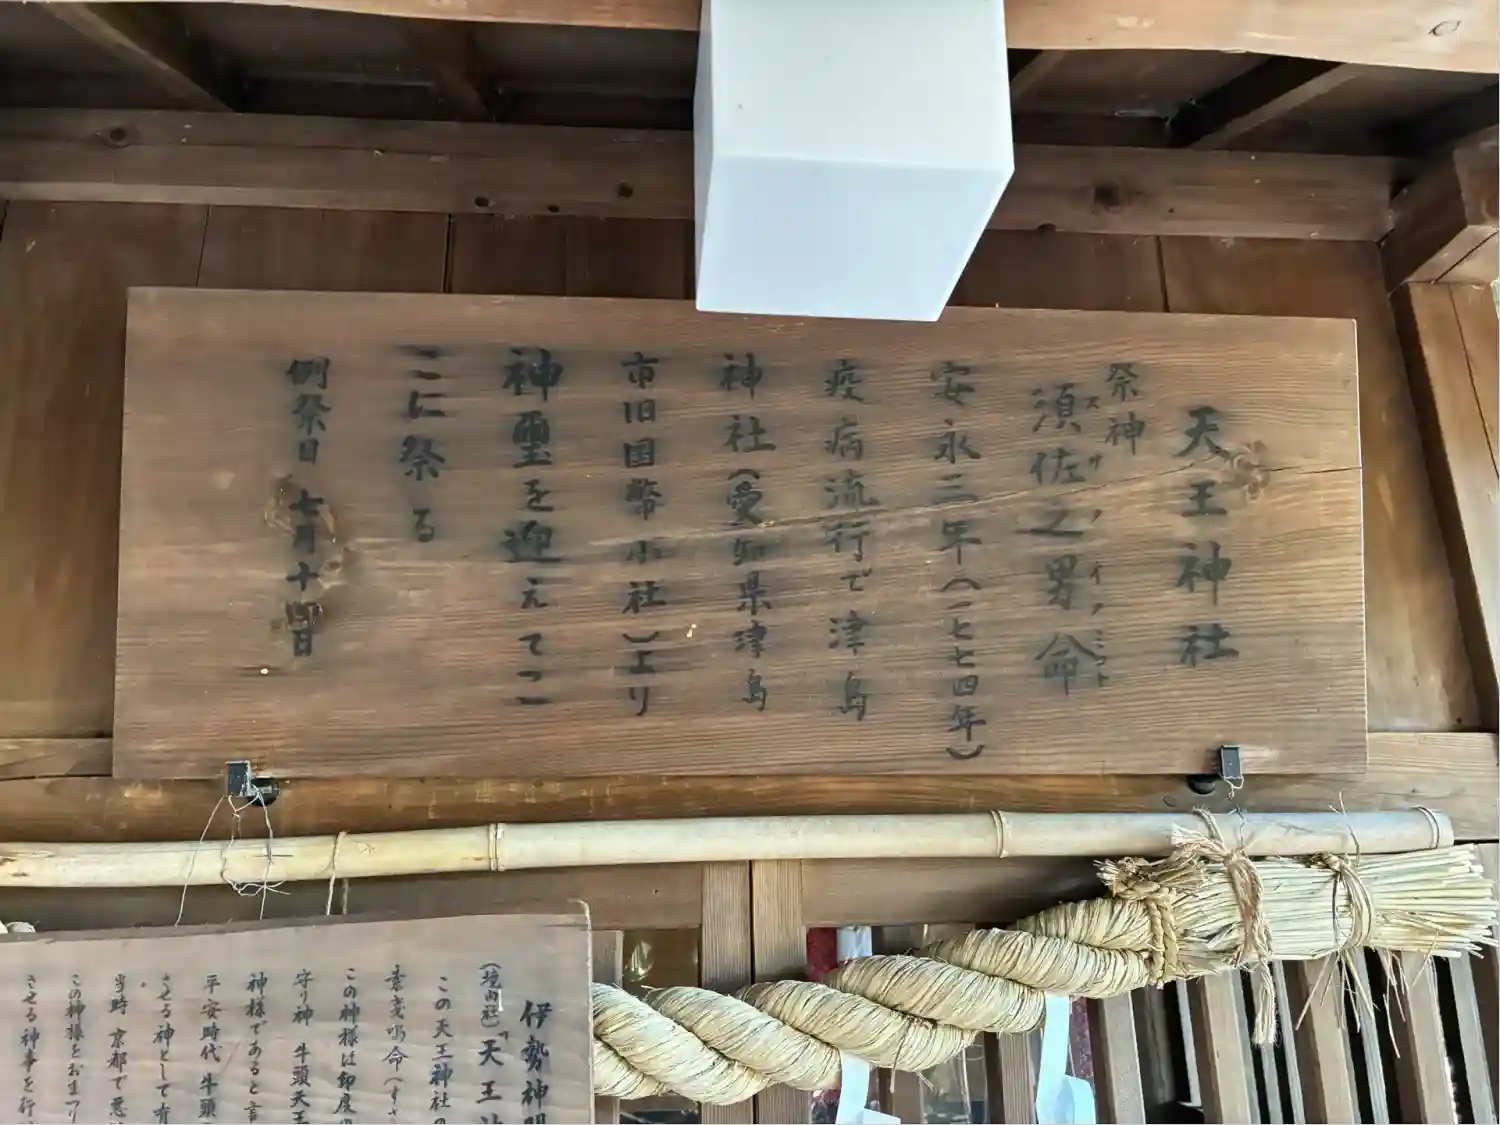 天王神社
祭神
須佐之男命
スサノイノミコト
安永三年(一七七四年)
疫病流行で津島
神社(愛知県津島
市旧国幣小社)より
神璽を迎えてこ
こに祭る
例祭日 七月十四日
伊勢神明
(境内社)「天王神
この天王神社の
素戔嗚命(すさ
この神様は印度の
守り神 牛頭天王
神様であると言
平安時代 牛頭
させる神として有
当時 京都で悪
この神様をおまつり
させる神事を行